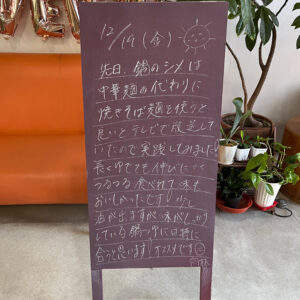 12/19 (金)
先日、鍋のシメは
中華麺の代わりに
焼きそば麺を使うと
良いとテレビで放送して
いたので実践してみました!
長くゆでても伸びにくく
つるつる食べれて味も
おいしかったです! 少し
油が出ますが味がしっかり
している鍋つゆには特に
合うと思います! オススメです